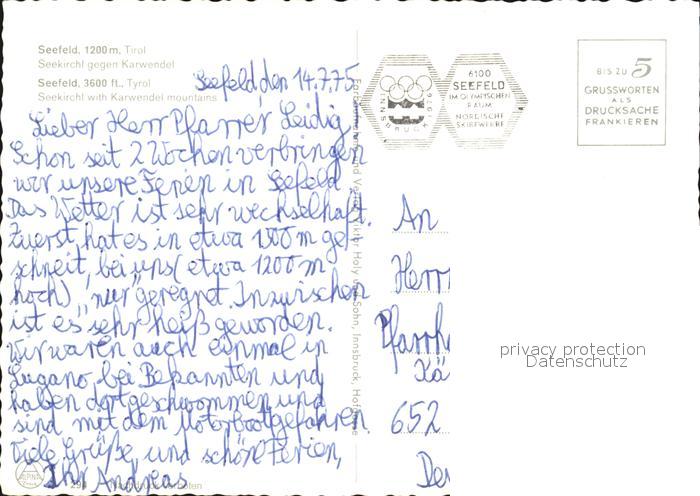 Seefeld, 1200 m, Tirol
Seekirchl gegen Karwendel
Seefeld, 3600 ft., Tyrol
Seekirchl with Karwendel mountains
Seefeld, den 14.7.75
Lieber Herr Pfarrer Leidig
Schon seit 2 Wochen verbringen
wir unsere Ferien in Seefeld
Das Wetter ist sehr wechselhaft.
Zuerst hat es in etwa 1800 m ge-
schneit, bei uns (etwa 1200 m
hoch) "nur" geregnet. Inzwischen
ist es sehr heiß geworden.
Wir waren auch einmal in
Lugano bei Bekannten und
haben dort geschwommen und
sind mit dem Motorboot gefahren.
Viele Grüße und schöne Ferien,
Ihr Andreas
ALPINA
INNSBRUCK 1976
6100
SEEFELD
IM OLYMPISCHEN
RAUM
NORDISCHE
SKIBEWERBE
BIS ZU 5
GRUSSWORTEN
ALS
DRUCKSACHE
FRANKIEREN
An
Herr
Pfarrh
Kä
652
privacy protection
Datenschutz